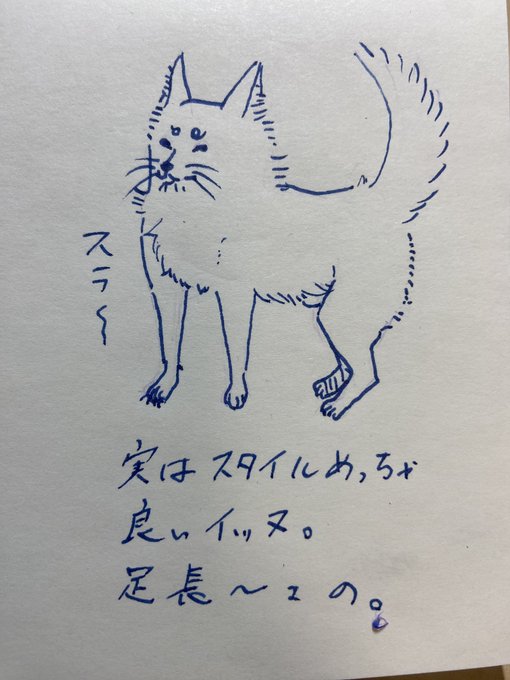 スラ〜
実はスタイルめっちゃ
良いイッヌ。
足長〜ェの。